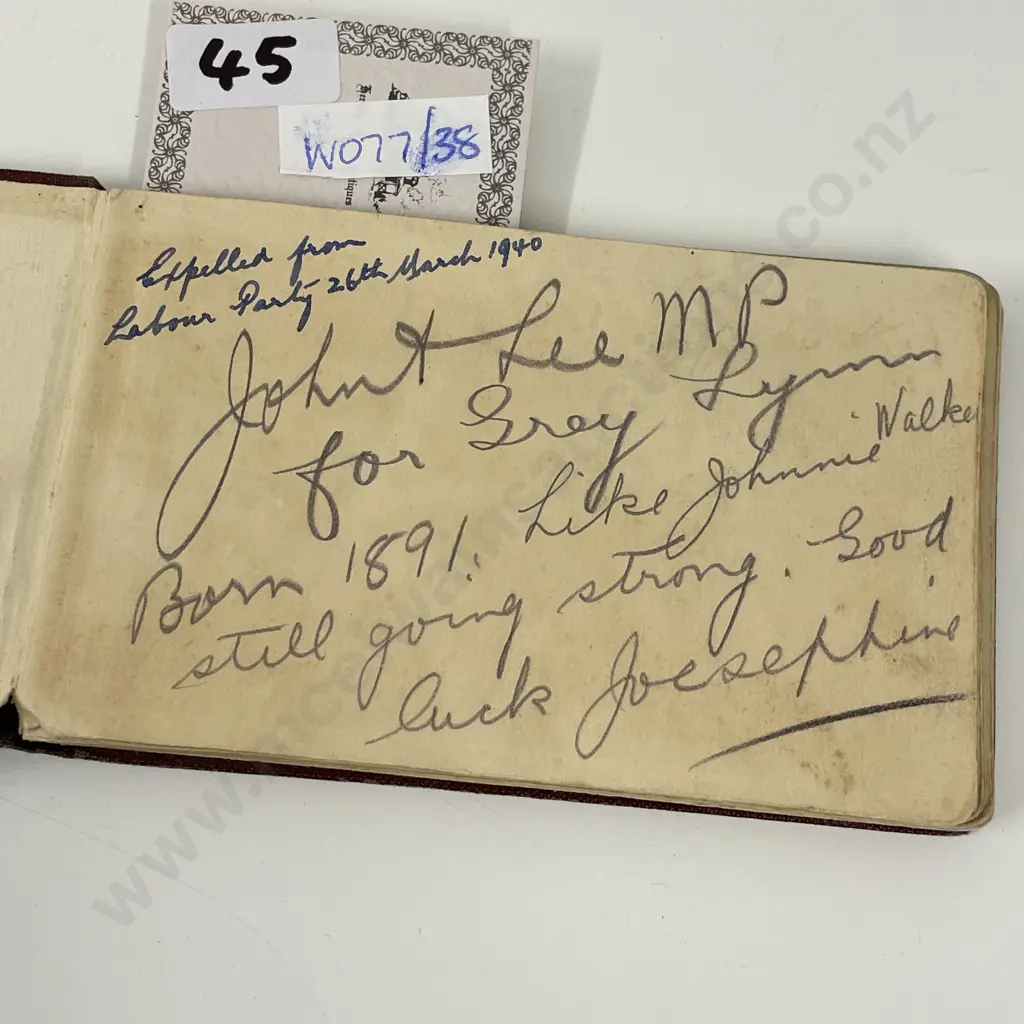 45
W077/38
Expelled from
Labour Party 26th March 1940
John A Lee MP
for Grey Lynn
Born 1891. Like Johnnie Walker
still going strong. Good
luck Joesephine